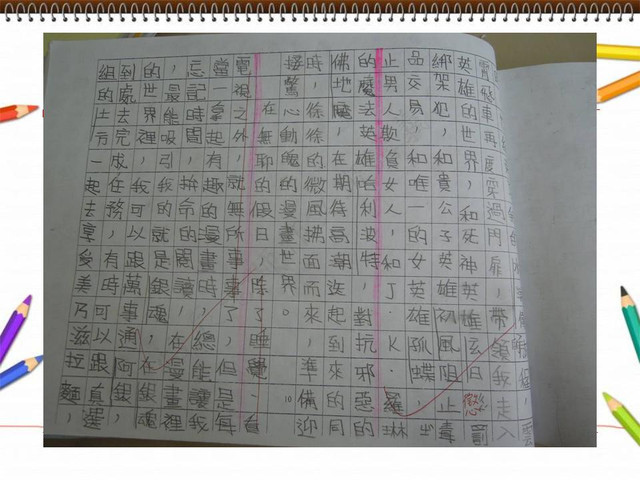 霄飛車再度穿過門扉,帶領我走入
英雄的世界,和死神英雄玄日懲罰
綁架犯,和貴公子英雄初風阻止毒
品交易,和唯一的女英雄孤蝶
止男人欺負女人,和J.K.羅琳
的魔法英雄哈利波特,對抗邪惡的
佛地魔,在期待高潮迭起,到來的同
時,徐徐的微風拂面而來,準備迎
接驚心動魄的漫畫世界。
在無聊的假日,除了睡覺
電視之外,就無所事事了,但是,每
當一拿起有趣的漫畫時,總能讓我
忘記時間,拼命的閱讀,在漫畫裡
,最能吸引我的就是銀魂,在銀魂
的世界裡,我可以跟萬事通阿銀,
到處去完成任務,有時可以跟真選
組的土方一起去享受美乃滋拉麵,